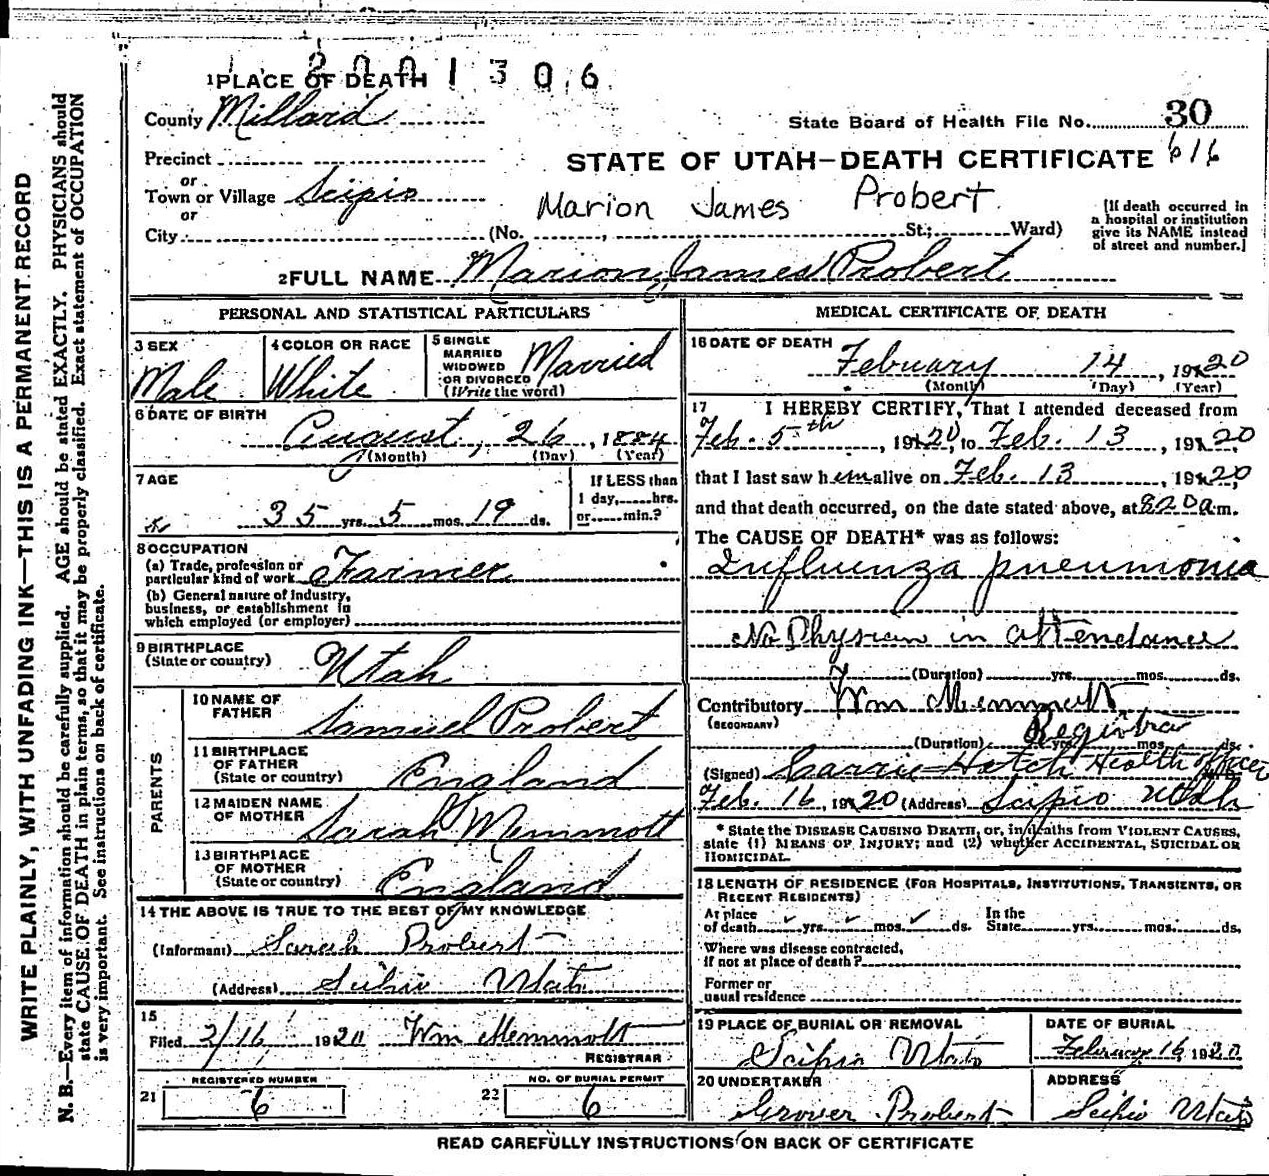 2001306
1 PLACE OF DEATH
County Millard
State Board of Health File No. 30
Precinct
STATE OF UTAH—DEATH CERTIFICATE 616
or
Town or Village Scipio
Marion James Probert
or
City (No. , St.; Ward)
[If death occurred in a hospital or institution give its NAME instead of street and number.]
2 FULL NAME Marion James Probert
PERSONAL AND STATISTICAL PARTICULARS
3 SEX
Male
4 COLOR OR RACE
White
5 SINGLE
MARRIED
WIDOWED
OR DIVORCED
(Write the word)
Married
6 DATE OF BIRTH
August, 26, 1884
(Month) (Day) (Year)
7 AGE
35 yrs. 5 mos. 19 ds.
If LESS than
1 day, hrs.
or min.?
8 OCCUPATION
(a) Trade, profession or
particular kind of work Farmer
(b) General nature of industry,
business, or establishment in
which employed (or employer)
9 BIRTHPLACE
(State or country) Utah
PARENTS
10 NAME OF
FATHER Samuel Probert
11 BIRTHPLACE
OF FATHER
(State or country) England
12 MAIDEN NAME
OF MOTHER Sarah Memmott
13 BIRTHPLACE
OF MOTHER
(State or country) England
14 THE ABOVE IS TRUE TO THE BEST OF MY KNOWLEDGE
(Informant) Sarah Probert
(Address) Scipio Utah
15
Filed 2/16 1920 Wm Memmott
REGISTRAR
21 REGISTERED NUMBER
6
22 NO. OF BURIAL PERMIT
6
MEDICAL CERTIFICATE OF DEATH
16 DATE OF DEATH
February 14, 1920
(Month) (Day) (Year)
17 I HEREBY CERTIFY, That I attended deceased from
Feb. 5th, 1920, to Feb. 13, 1920,
that I last saw him alive on Feb. 13, 1920,
and that death occurred, on the date stated above, at 820 a m.
The CAUSE OF DEATH* was as follows:
Influenza pneumonia
No Physian in attendance
(Duration) yrs. mos. ds.
Contributory Wm Memmott
(SECONDARY) Registrar
(Duration) yrs. mos. ds.
(Signed) Carrie Hatch Health officer
Feb. 16, 1920 (Address) Scipio Utah
* State the DISEASE CAUSING DEATH, or, in deaths from VIOLENT CAUSES,
state (1) MEANS OF INJURY; and (2) whether ACCIDENTAL, SUICIDAL OR
HOMICIDAL.
18 LENGTH OF RESIDENCE (FOR HOSPITALS, INSTITUTIONS, TRANSIENTS, OR
RECENT RESIDENTS)
At place
of death yrs. mos. ds.
In the
State yrs. mos. ds.
Where was disease contracted,
if not at place of death?
Former or
usual residence
19 PLACE OF BURIAL OR REMOVAL
Scipio Utah
DATE OF BURIAL
February 16 1920
20 UNDERTAKER
Grover Probert
ADDRESS
Scipio Utah
READ CAREFULLY INSTRUCTIONS ON BACK OF CERTIFICATE
WRITE PLAINLY, WITH UNFADING INK—THIS IS A PERMANENT RECORD
N. B.—Every item of information should be carefully supplied. AGE should be stated EXACTLY. PHYSICIANS should
state CAUSE OF DEATH in plain terms, so that it may be properly classified. Exact statement of OCCUPATION
is very important. See instructions on back of certificate.